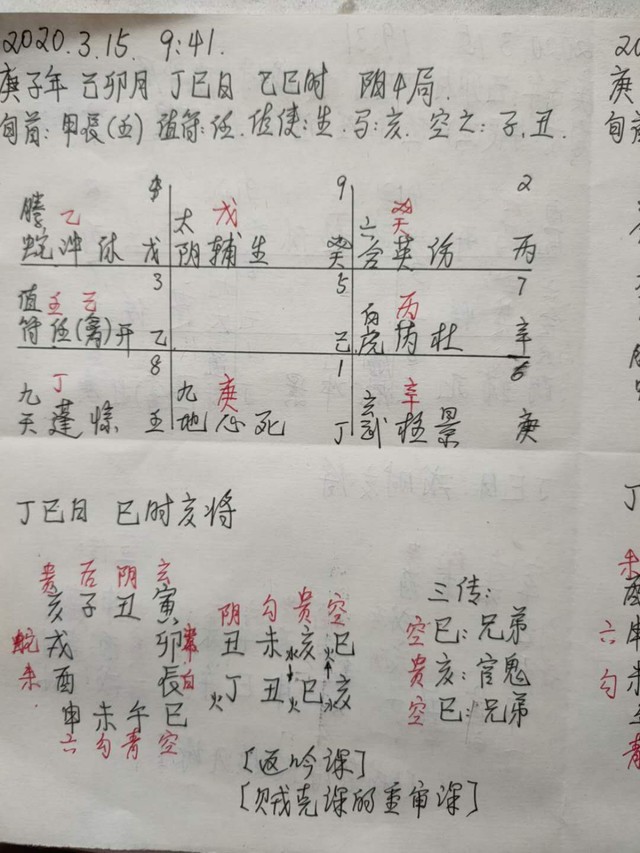 2020.3.15. 9:41.
庚子年 己卯月 丁巳日 乙巳时 阴4局.
旬首:甲辰(壬) 值符:任.值使:生.马:亥. 空亡:子,丑.
20
庚
旬首
4 9 2
螣 乙 太 戊 六
蛇 冲 休 戊 阴 辅 生 合 英 伤 丙
3 5 7
值 壬 己 丙
符 任(禽)开 乙 己 虎 芮 杜 辛
8 1 6
九 丁 九 庚 玄 辛
天 蓬 惊 壬 地 心 死 丁 武 柱 景 庚
丁巳日 巳时亥将
丁
贵 后 阴 玄
亥 子 丑 寅
蛇 戌 卯 常
朱 酉 辰 白
申 未 午 巳
六 勾 青 空
阴 勾 贵 空
丑 未 亥 巳
水 火
丁 丑 巳 亥
火 火 水
三传:
空 巳:兄弟
贵 亥:官鬼
空 巳:兄弟
[返吟课]
[贼克课的重审课]
朱
酉
六 申
勾 未
青